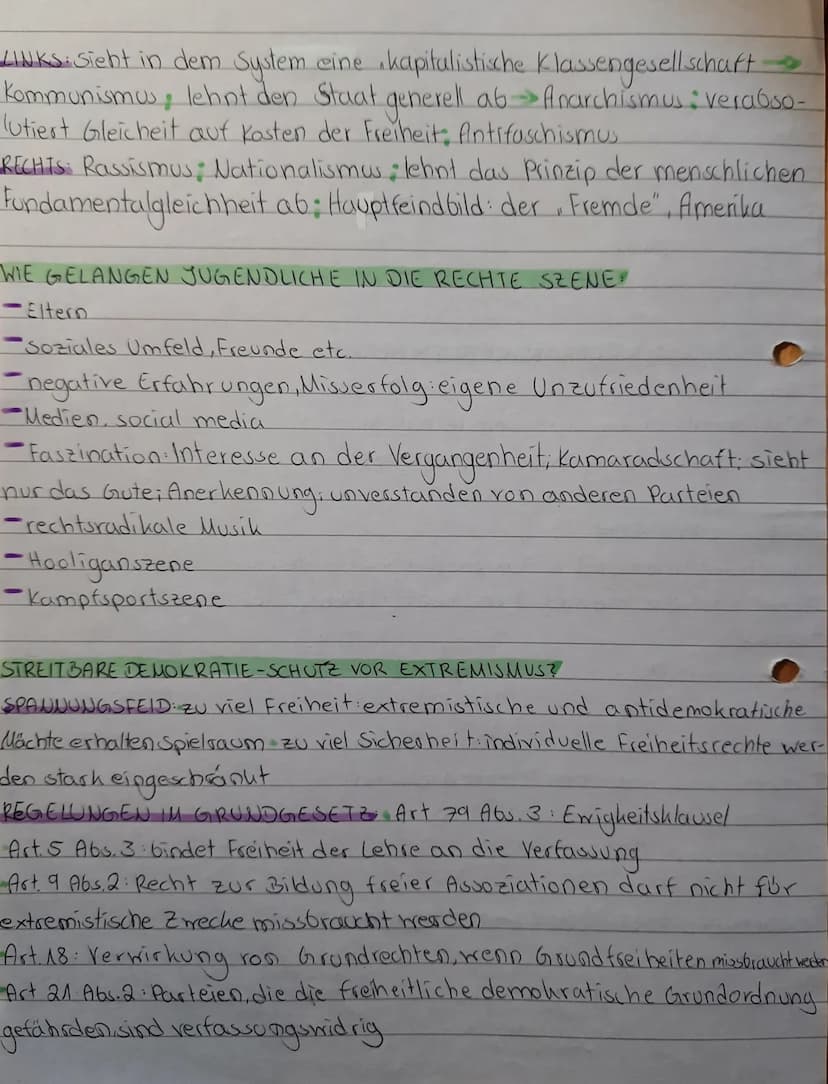 LINKS: Sieht in dem System eine "kapitalistische Klassengesellschaft →
Kommunismus; lehnt den Staat generell ab → Anarchismus; verabso-
lutiert Gleicheit auf Kosten der Freiheit; Antifaschismus
RECHTS: Rassismus; Nationalismus; lehnt das Prinzip der menschlichen
Fundamentalgleichheit ab; Hauptfeindbild: der "Fremde", Amerika
WIE GELANGEN JUGENDLICHE IN DIE RECHTE SZENE?
- Eltern
- soziales Umfeld, Freunde etc.
- negative Erfahrungen, Misserfolg: eigene Unzufriedenheit
- Medien, social media
- Faszination: Interesse an der Vergangenheit; Kamaradschaft; sieht
nur das Gute; Anerkennung; unverstanden von anderen Parteien
- rechtsradikale Musik
- Hooliganszene
- Kampfsportszene
STREITBARE DEMOKRATIE - SCHUTZ VOR EXTREMISMUS?
SPANNUNGSFELD: zu viel Freiheit: extremistische und antidemokratische
Mächte erhalten Spielraum • zu viel Sicherheit: individuelle Freiheitsrechte wer-
den stark eingeschränkt
REGELUNGEN IM GRUNDGESETZ: • Art 79 Abs. 3: Ewigkeitsklausel
• Art. 5 Abs. 3: bindet Freiheit der Lehre an die Verfassung
• Art. 9 Abs. 2: Recht zur Bildung freier Assoziationen darf nicht für
extremistische Zwecke missbraucht werden
• Art. 18: Verwirkung von Grundrechten, wenn Grundfreiheiten missbraucht werden
• Art 21 Abs. 2: Parteien, die die freiheitliche demokratische Grundordnung
gefährden, sind verfassungswidrig